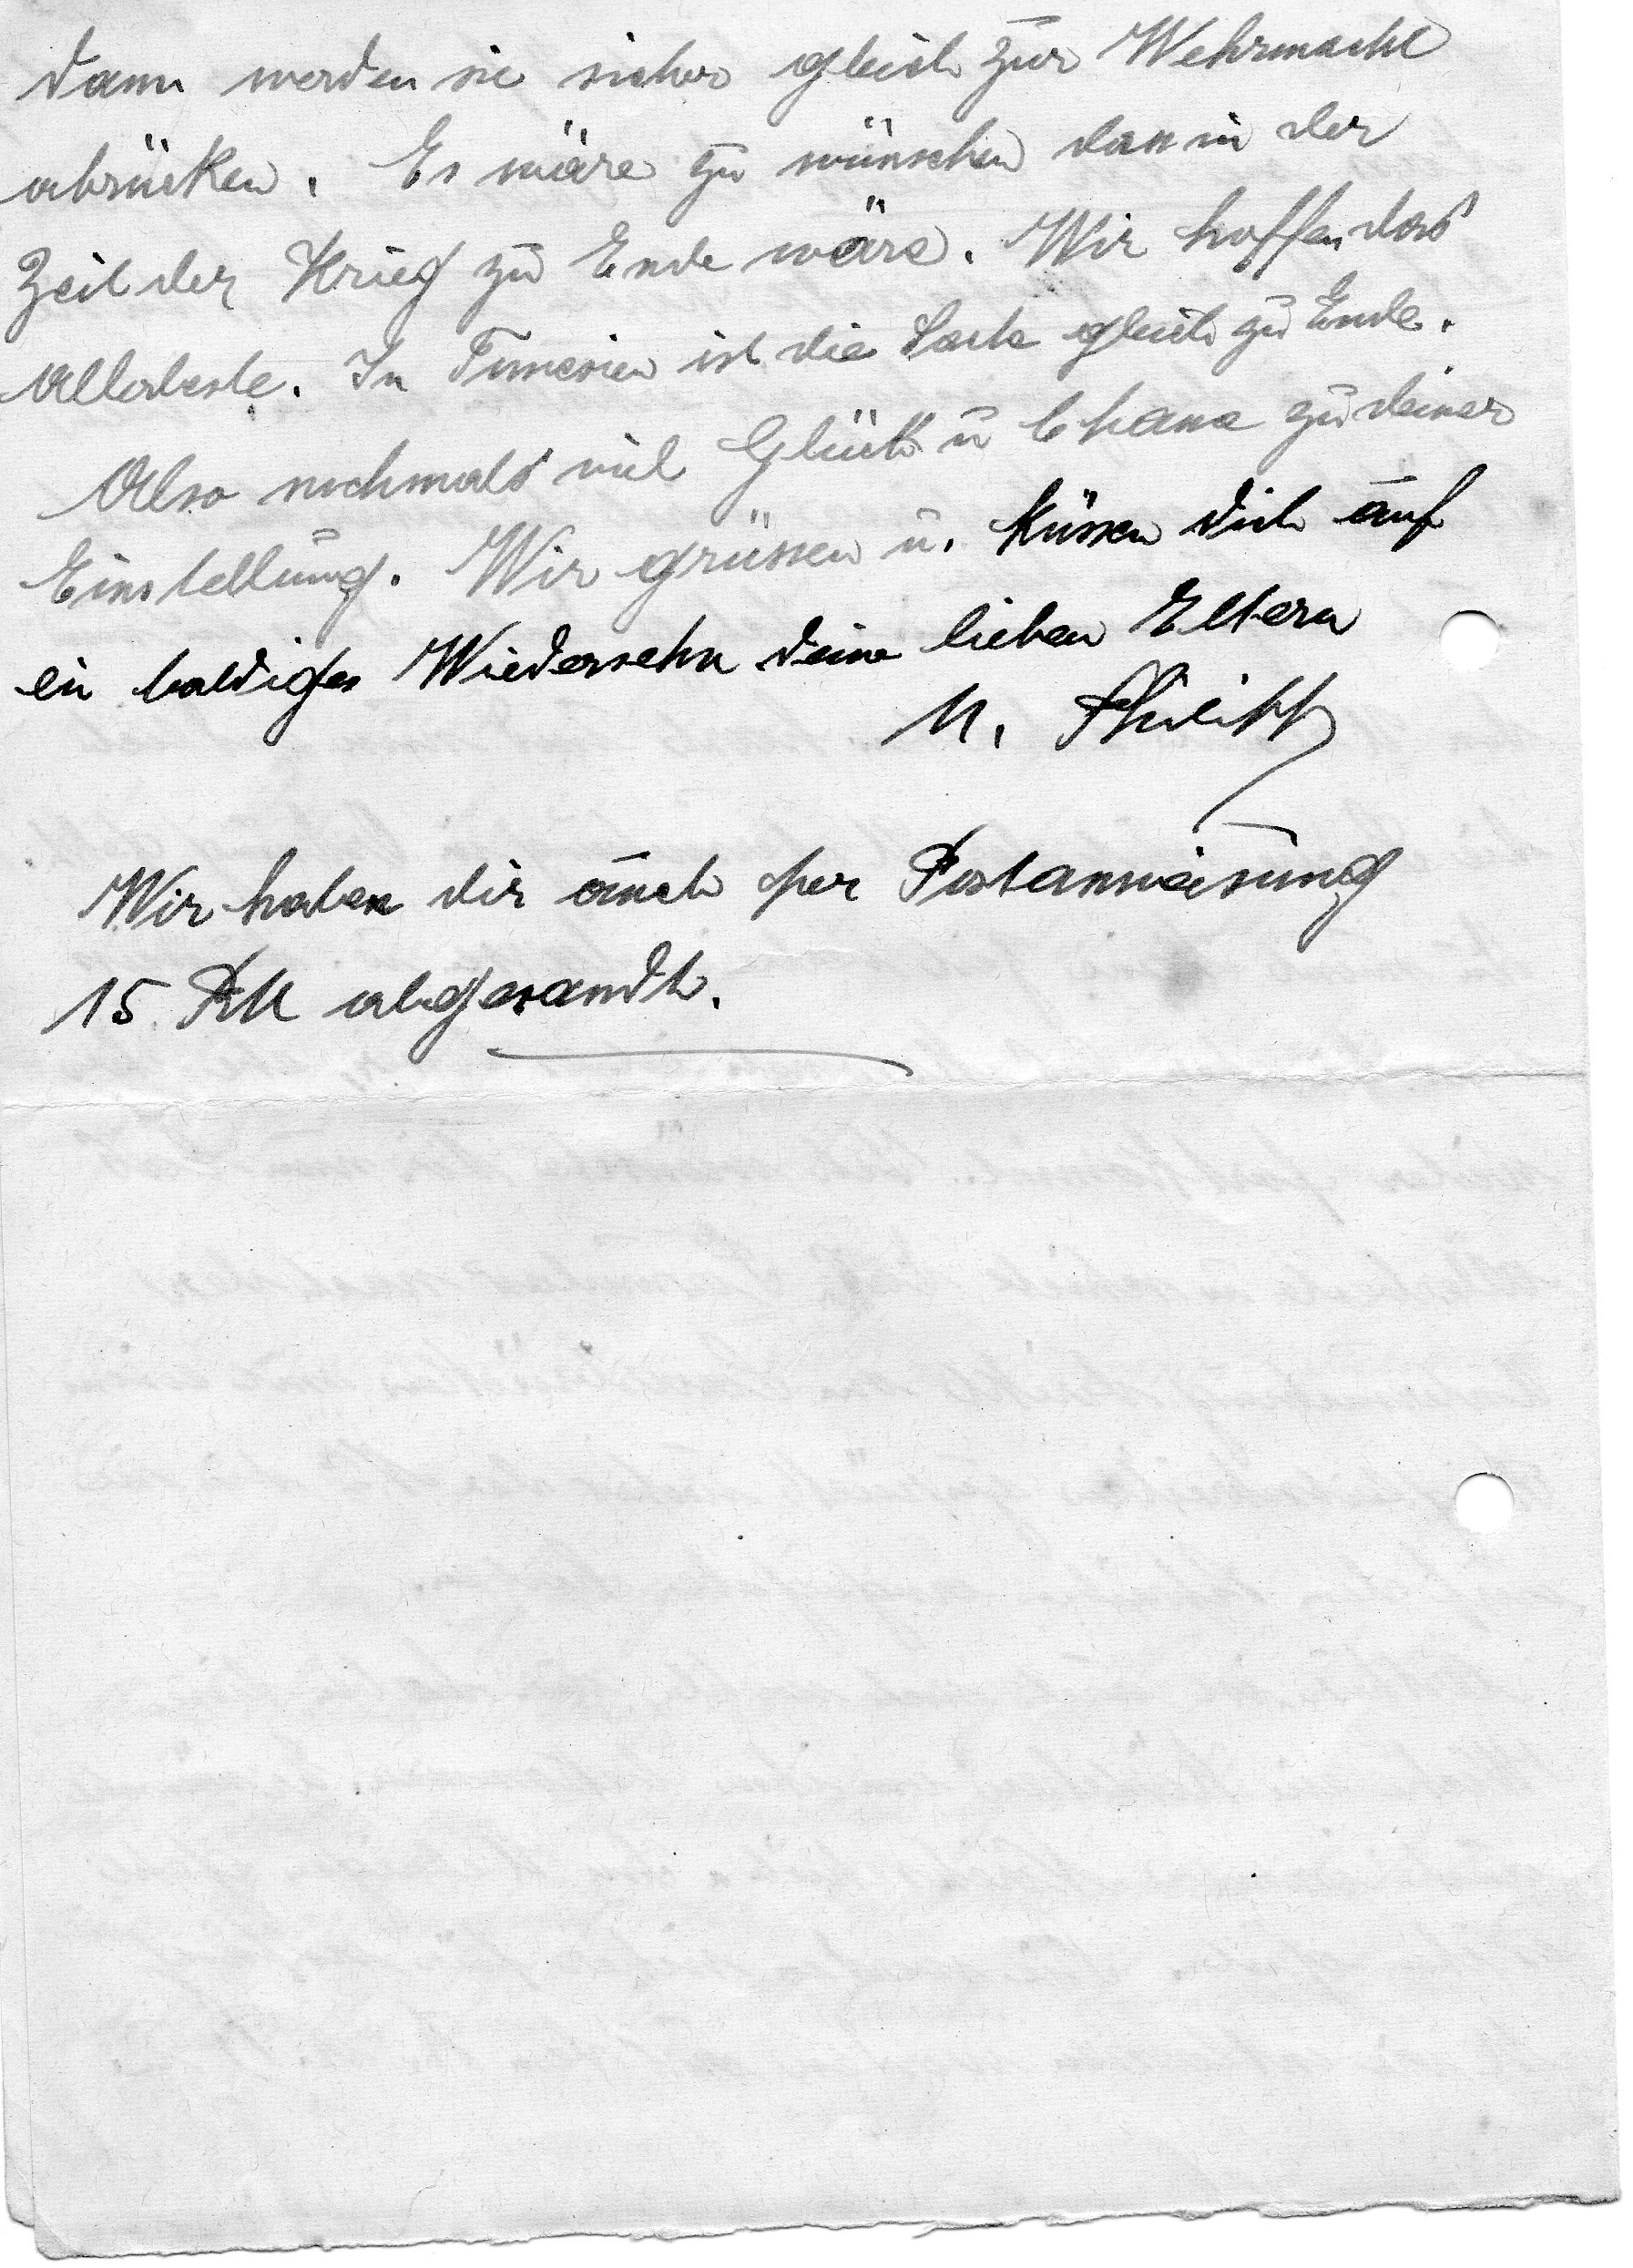 dann werden sie sicher gleich zur Wehrmacht
abrücken. Es wäre zu wünschen das in der
Zeit der Krieg zu Ende wäre. Wir hoffen das
Allerbeste. In Tunesien ist die Sache gleich zu Ende.
Also nochmals viel Glück u Chanc zu deiner
Einstellung. Wir grüssen u. küssen dich auf
ein baldiges Wiedersehn deine lieben Eltern
u. Philipp
Wir haben dir auch per Postanweisung
15 RM abgesandt.